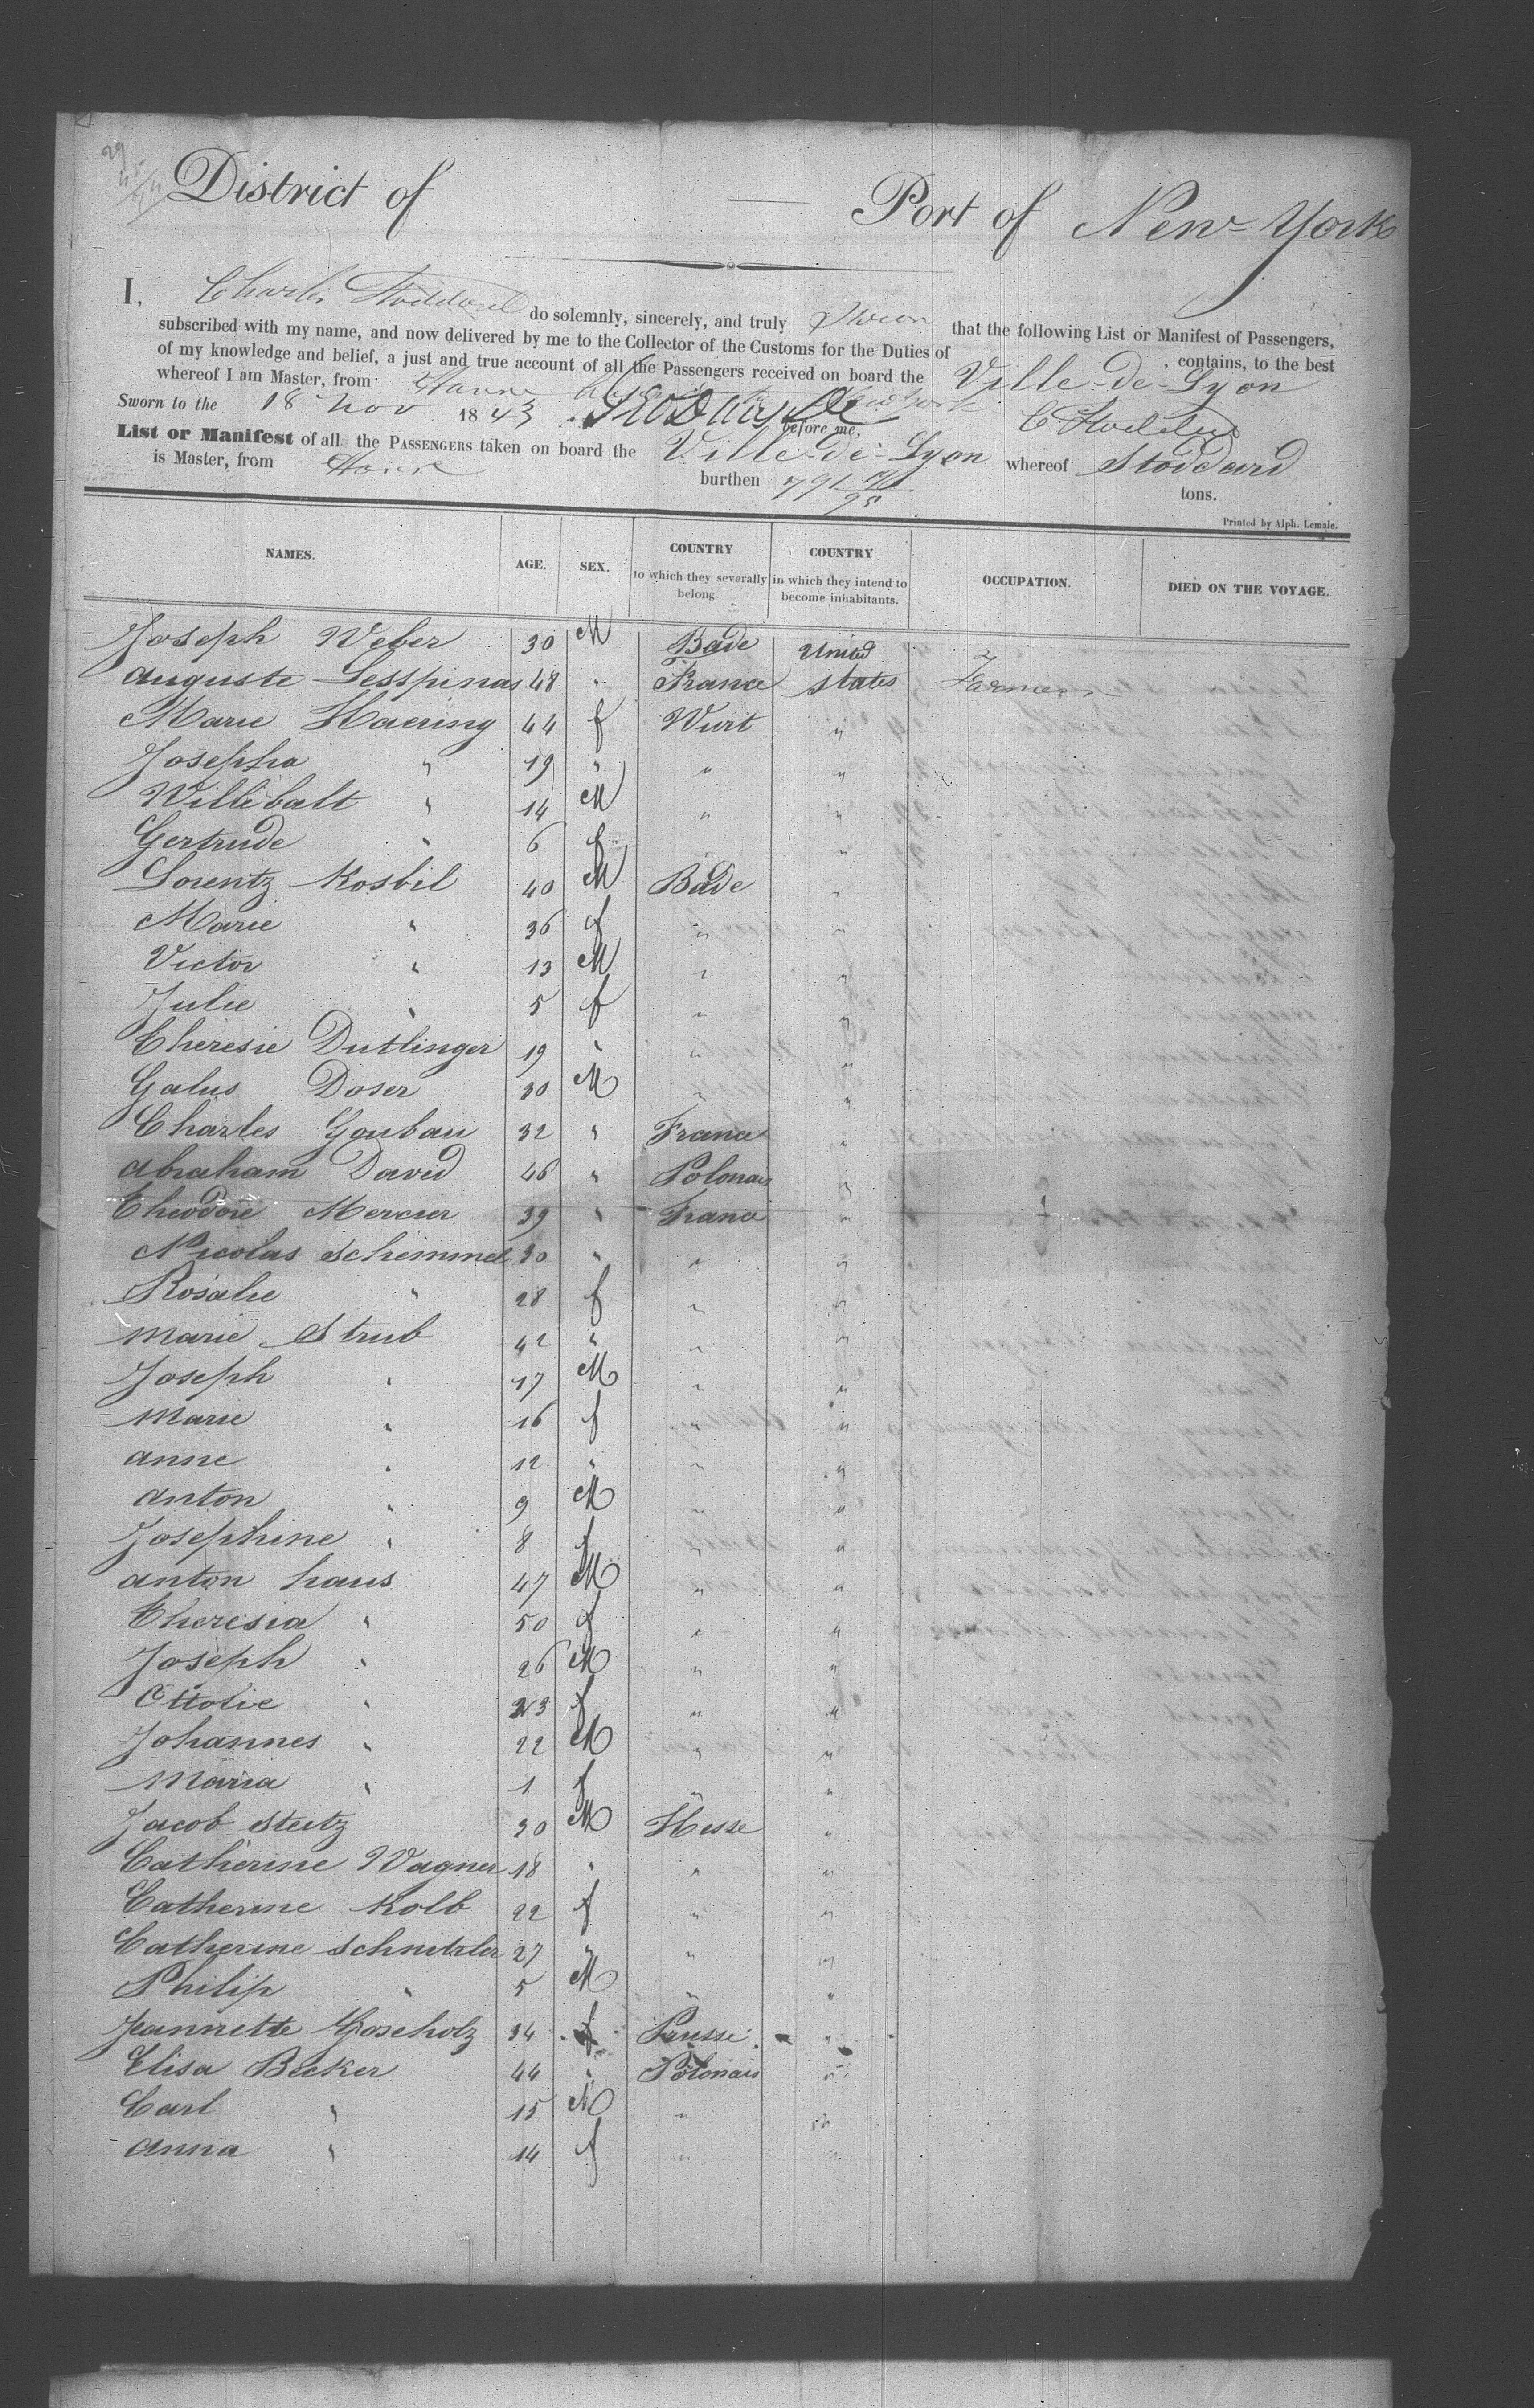 District of — Port of New-York
I, Charles Stoddard do solemnly, sincerely, and truly Swear that the following List or Manifest of Passengers,
subscribed with my name, and now delivered by me to the Collector of the Customs for the Duties of , contains, to the best
of my knowledge and belief, a just and true account of all the Passengers received on board the Ville-de-Lyon
whereof I am Master, from Havre New York
Sworn to the 18 Nov 1843 before me, C Stoddard
List or Manifest of all the PASSENGERS taken on board the Ville-de-Lyon whereof Stoddard
is Master, from Havre burthen 791 tons.
Printed by Alph. Lemale.
NAMES. AGE. SEX. COUNTRY to which they severally belong COUNTRY in which they intend to become inhabitants. OCCUPATION. DIED ON THE VOYAGE.
Joseph Weber 30 M Bade United
Auguste Lesspinas 48 " France States Farmers
Marie Haering 44 f Wurt "
Josepha " 19 " " "
Willibalt " 14 M " "
Gertrude " 6 f " "
Lorentz Kosbil 40 M Bade "
Marie " 36 f " "
Victor " 13 M " "
Julie " 5 f " "
Theresie Dutlinger 19 " " "
Galus Doser 30 M " "
Charles Goubau 32 " France "
Abraham David 46 " Polonais "
Theodore Mercier 39 " France "
Nicolas Schemmel 30 " " "
Rosalie " 28 f " "
Marie Strub 42 " " "
Joseph " 17 M " "
Marie " 16 f " "
Anne " 12 " " "
Anton " 9 M " "
Josephine " 8 f " "
Anton Haus 47 M " "
Theresia " 50 f " "
Joseph " 26 M " "
Ottolie " 23 f " "
Johannes " 22 M " "
Maria " 1 f " "
Jacob Steitz 30 M Hesse "
Catherine Wagner 18 " " "
Catherine Kolb 22 f " "
Catherine Schnitzler 27 " " "
Philip " 5 M " "
Jeannette Goseholz 34 f Prusse "
Elisa Becker 44 " Polonais "
Carl " 15 M " "
Anna " 14 f " "